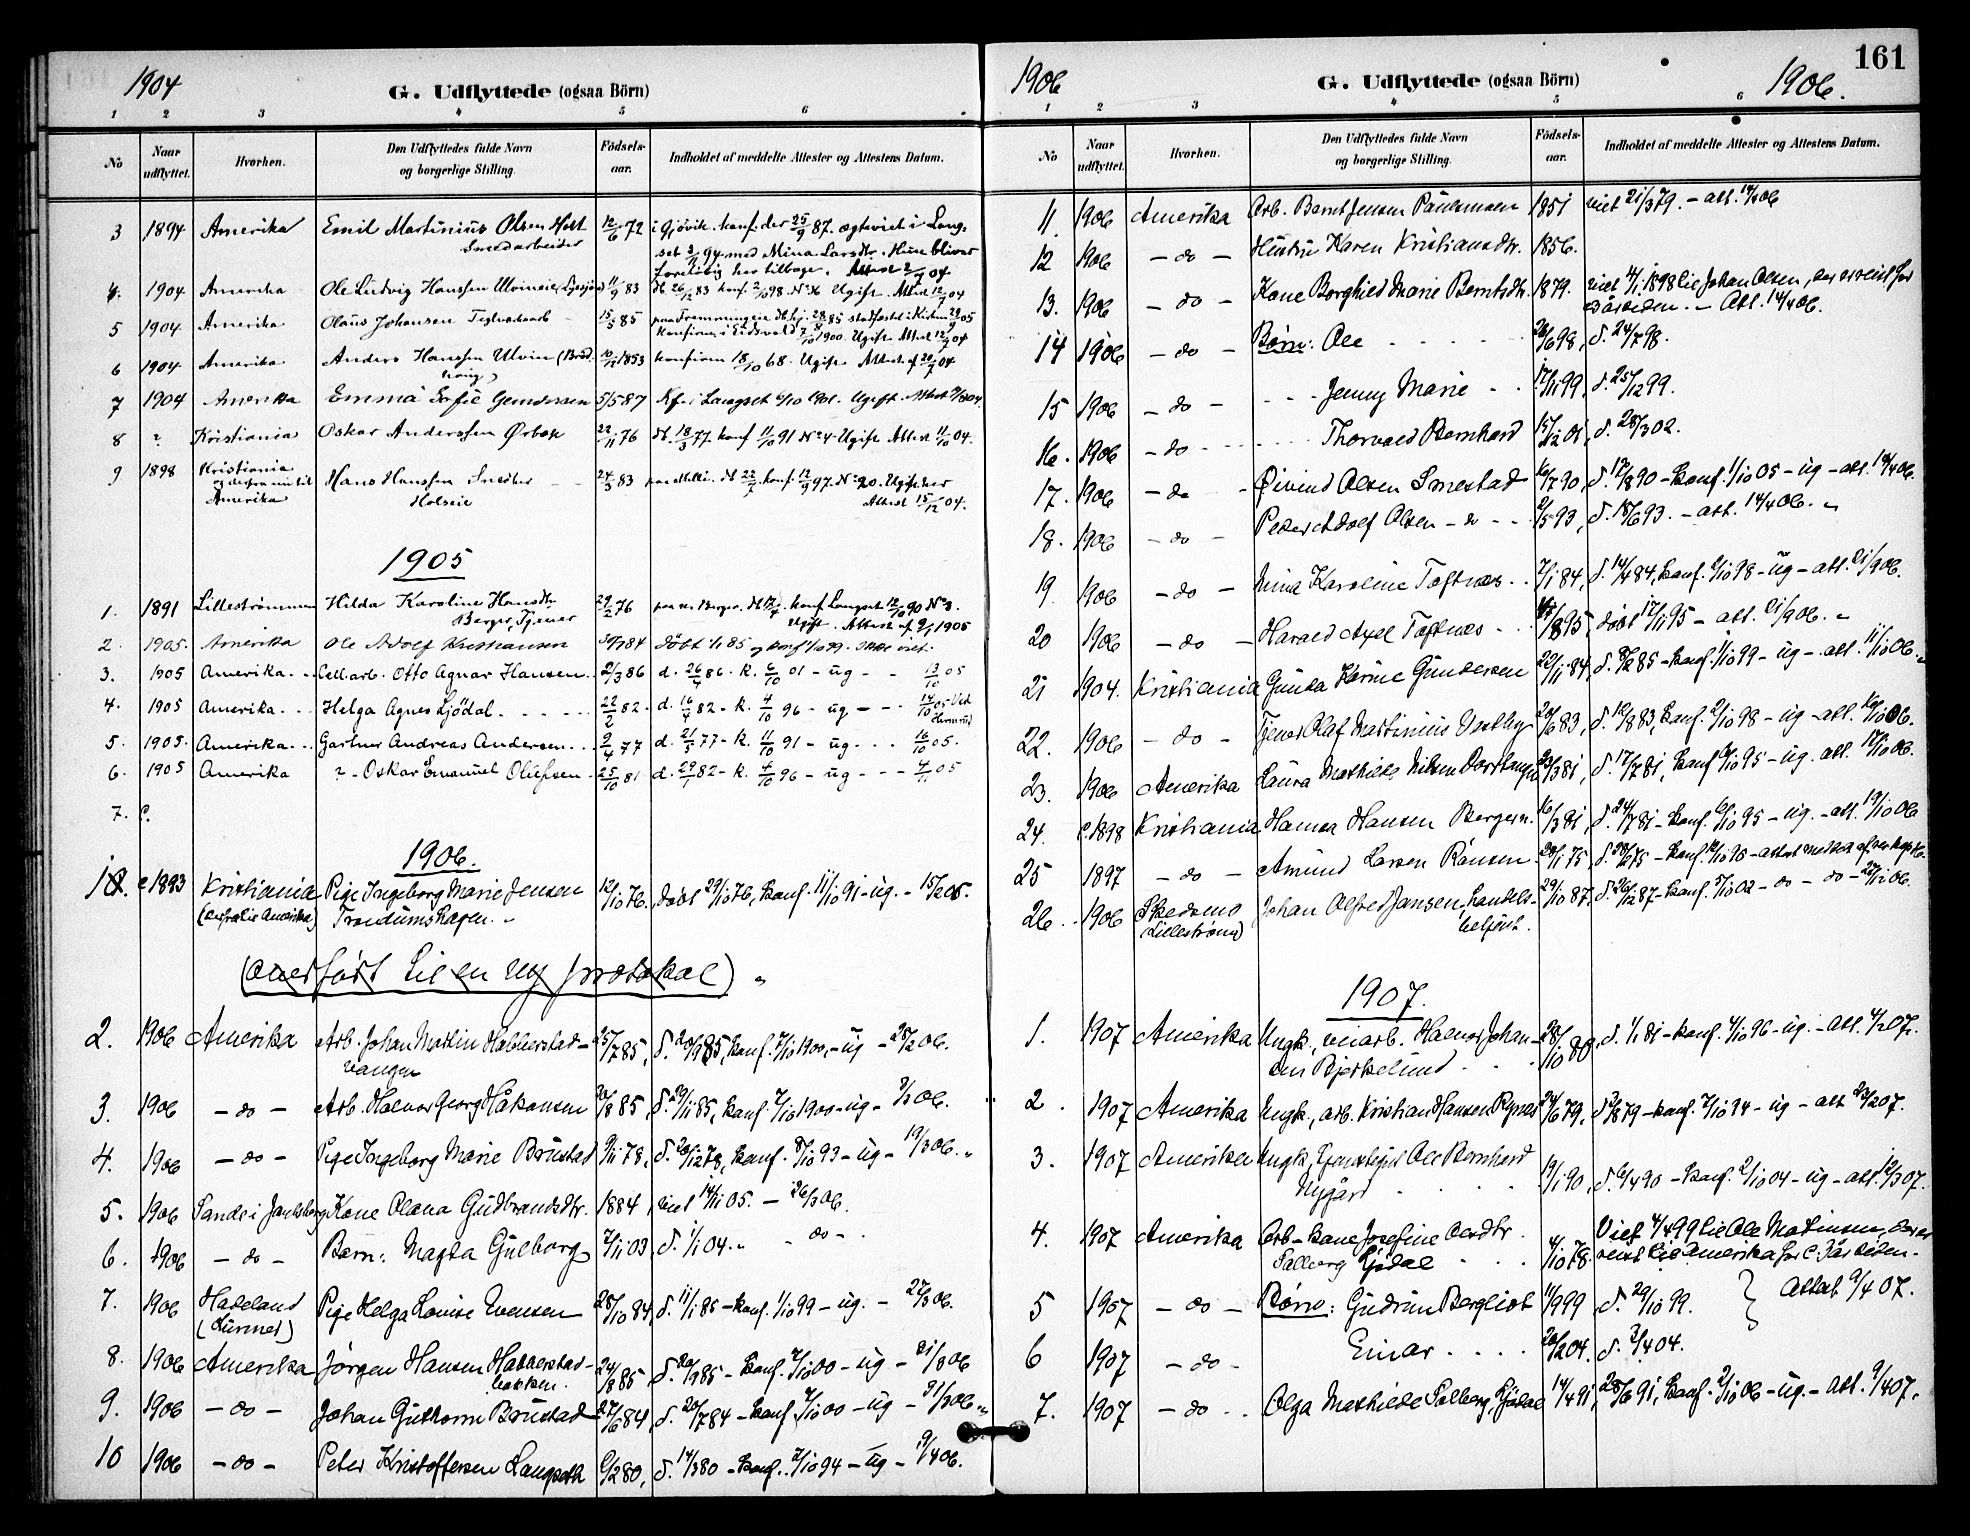 1904
G. Udflyttede (ogsaa Börn)
1 2 3 4 5 6
No Naar udflyttet. Hvorhen. Den Udflyttedes fulde Navn og borgerlige Stilling. Födsels-aar. Indholdet af meddelte Attester og Attestens Datum.
3 1894 Amerika Emil Martinius Olsen 12/6 72 i Gjövik. konf. der 25/9 87. ægteviet i Lang-
Smedarbeider set 94 med Mina Larsdtr. Hun bliver
foreløbig her tilbage. Attest 04
4. 1904 Amerika Ole Ludvig Hanssen 11/9 83 db. 26/12 83 konf. 2/10 98. No 16 Ugift. Attest 12/7 04
5 1904 Amerika Olaus Johansen 15/5 85
konfirm i Eidsvold 1900. Ugift Attest 12/7 04
6 1904 Amerika Anders Hanssen Ulvin 1853 konfirm 18/10 68. Ugift Attest af 20/7 04
7 1904 Amerika Emma Sofie Gundersen 5/5 87 Kf. i Langset 1901. Ugift. Attest
8 ? Kristiania Oskar Anderssen Ørbæk 22/11 76 db. 18/3 77 konf 11/10 91 No 4 Ugift Attest 11/10 04.
9 1898 Kristiania og derfra nu til Amerika Hans Hanssen 24/3 83 db 22/7. konf. 12/9 97. No 20. Ugift her
Attest 15/12 04.
1905
1. 1891 Lilleströmmen Hilda Karoline Hansdtr. 29/2 76 konf Langset 12/10 90 No 3.
Berger, Tjener Ugift. Attest af 9/1 1905
2. 1905. Amerika Ole Adolf Kristiansen 84 döbt 1/1 85
3. 1905 Amerika Cell.arb. Otto Agnar Hansen 2/3 86 d. 26/4 86. k. 6/10 01 - ug - 13/10 05
4. 1905 Amerika Helga Agnes Ljödal 22/2 82 d. 16/4 82 - k. 4/10 96 - ug - 14/10 05
5. 1905. Amerika Gartner Andreas Andersen 2/4 77 d. 21/5 77 - k. 11/10 91 - ug 16/10 05.
6. 1905 Amerika Oskar Emanuel Olufsen 25/10 81 d. 29/1 82 - k. 4/10 96 - ug 4/11 05
7.
1906.
1. 1893 Kristiania Pige Ingeborg Marie Jensen 12/10 76. döbt 29/10 76, konf. 11/10 91 - ug. - 15/2 05.
(Amerika) Trondumshagen.
(overført til en ny protokol)
2. 1906 Amerika Arb. Johan Martin Habberstad- 25/7 85, d. 20/9 85, konf. 7/10 1900, - ug - 25/2 06.
vangen
3. 1906 - do - Arb. Halvor Georg Håkonsen 20/8 85, d. 29/11 85, konf. 7/10 1900 - ug - 06.
4. 1906 - do - Pige Ingeborg Marie Brustad 9/11 78, d. 26/12 78, konf. 8/10 93 - ug - 19/3 06.
5. 1906 Sande i Jarlsberg Kone Olava Gudbrandsdtr. 1884, viet 14/11 05. - 26/3 06.
6. 1906 - do - Barn: Magda Gulborg 7/11 03, d. 1/1 04. - do -
7. 1906 Hadeland Pige Helga Louise Evensen 28/10 84, d. 11/1 85 - konf. 1/10 99 - ug. - 27/3 06.
(Lunner)
8. 1906 Amerika Jörgen Hansen Habberstad- 24/8 85 d. 20/9 85 - konf. 7/10 00 - ug - 31/3 06
bakken.
9. 1906 - do - Johan Guthorm Brustad 27/6 84, d. 20/7 84 - konf. 7/10 00 - ug - 31/3 06
10 1906 - do - Peter Kristoffersen Langseth 6/2 80, d. 14/3 80 - konf. 7/10 94 - ug - 9/4 06.
161
1906
G. Udflyttede (ogsaa Börn)
1906.
1 2 3 4 5 6
No Naar udflyttet. Hvorhen. Den Udflyttedes fulde Navn og borgerlige Stilling. Födsels-aar. Indholdet af meddelte Attester og Attestens Datum.
11. 1906 Amerika Arb. Bernt Jensen Paulsmoen 1851 viet 21/3 79. - att. 14/4 06
12 1906 - do - Hustru Karen Kristiansdtr. 1856.
13. 1906 - do - Kone Borghild Marie Berntsdtr. 1879. viet 14/1 1898 til Johan Olsen, der er reist for
år siden. - Att. 14/4 06.
14 1906 - do - Børn: Ole 26/6 98, d. 24/7 98.
15 1906 - do - Jenny Marie 17/11 99, d. 25/12 99.
16. 1906 - do - Thorvald Bernhard 15/12 01, d. 28/3 02.
17. 1906 - do - Øivind Olsen Smestad 16/7 90, d. 17/8 90 - konf. 1/10 05 - ug - att. 14/4 06.
18. 1906 - do - Peder Adolf Olsen - do - 2/5 93, d. 18/6 93. - att. 14/4 06.
19. 1906 - do - Nina Karoline Toftnes 7/1 84, d. 14/4 84, konf. 2/10 98 - ug - att. 21/9 06.
20 1906 - do - Harald Axel Toftnes 8 95, döbt 17/11 95 - att. 21/9 06.
21 1904. Kristiania Gunda Karine Gundersen 22/11 84, d. 8/2 85 - konf. 1/10 99 - ug - att. 11/10 06.
22. 1906 - do - Tjener Olaf Martinius Vestby 20/6 83, d. 12/8 83, konf. 2/10 98 - ug - att. 16/10 06.
23. 1906 Amerika Laura Mathilde Nilsen 20/3 81, d. 17/7 81, konf. 6/10 95 - ug. att. 17/10 06.
24. 1898 Kristiania Hanna Hansen Bergern. 16/3 81, d. 24/7 81 - konf. 6/10 95 - ug. - att. 19/10 06
25 1897 - do - Amund Larsen Rånåsen 20/1 75, d. 28/2 75 - konf. 12/10 90 - attest
26. 1906 Skedsmo Johan Alfred Jansen, handels- 29/10 87, d. 26/12 87 - konf. 5/10 02 - do - do - 22/12 06.
(Lillestrøm) betjent.
1907.
1. 1907 Amerika Ungk., veiarb. Halvor Johan- 28/10 80, d. 1/1 81 - konf. 4/10 96 - ug. - att. 4/2 07.
sen Bjerkelund
2. 1907 Amerika Ungk., arb. Kristian Hansen Rynes 24/6 79, d. 3/8 79 - konf. 7/10 94 - ug - att 23/2 07.
3. 1907 Amerika Ungk., Ole Bernhard 19/1 90, d. 6/4 90 - konf. 2/10 04 - ug - att. 12/3 07.
Nygård
4. 1907 Amerika Arb.-kone Josefine Olsdtr. 4/10 78. Viet 4/4 99 til Ole Martinsen, der er
Solberg Ljödal reist til Amerika for år siden. -
5 1907 - do - Børn: Gudrun Bergliot 11/9 99 d. 29/10 99. } Attest 9/4 07.
6 1907 - do - Einar 20/2 04. d. 3/4 04.
7. 1907 - do - Olga Mathilde Solberg, Ljödal 14/4 91, 28/6 91, konf. 2/10 06 - ug. - Att. 9/4 07.